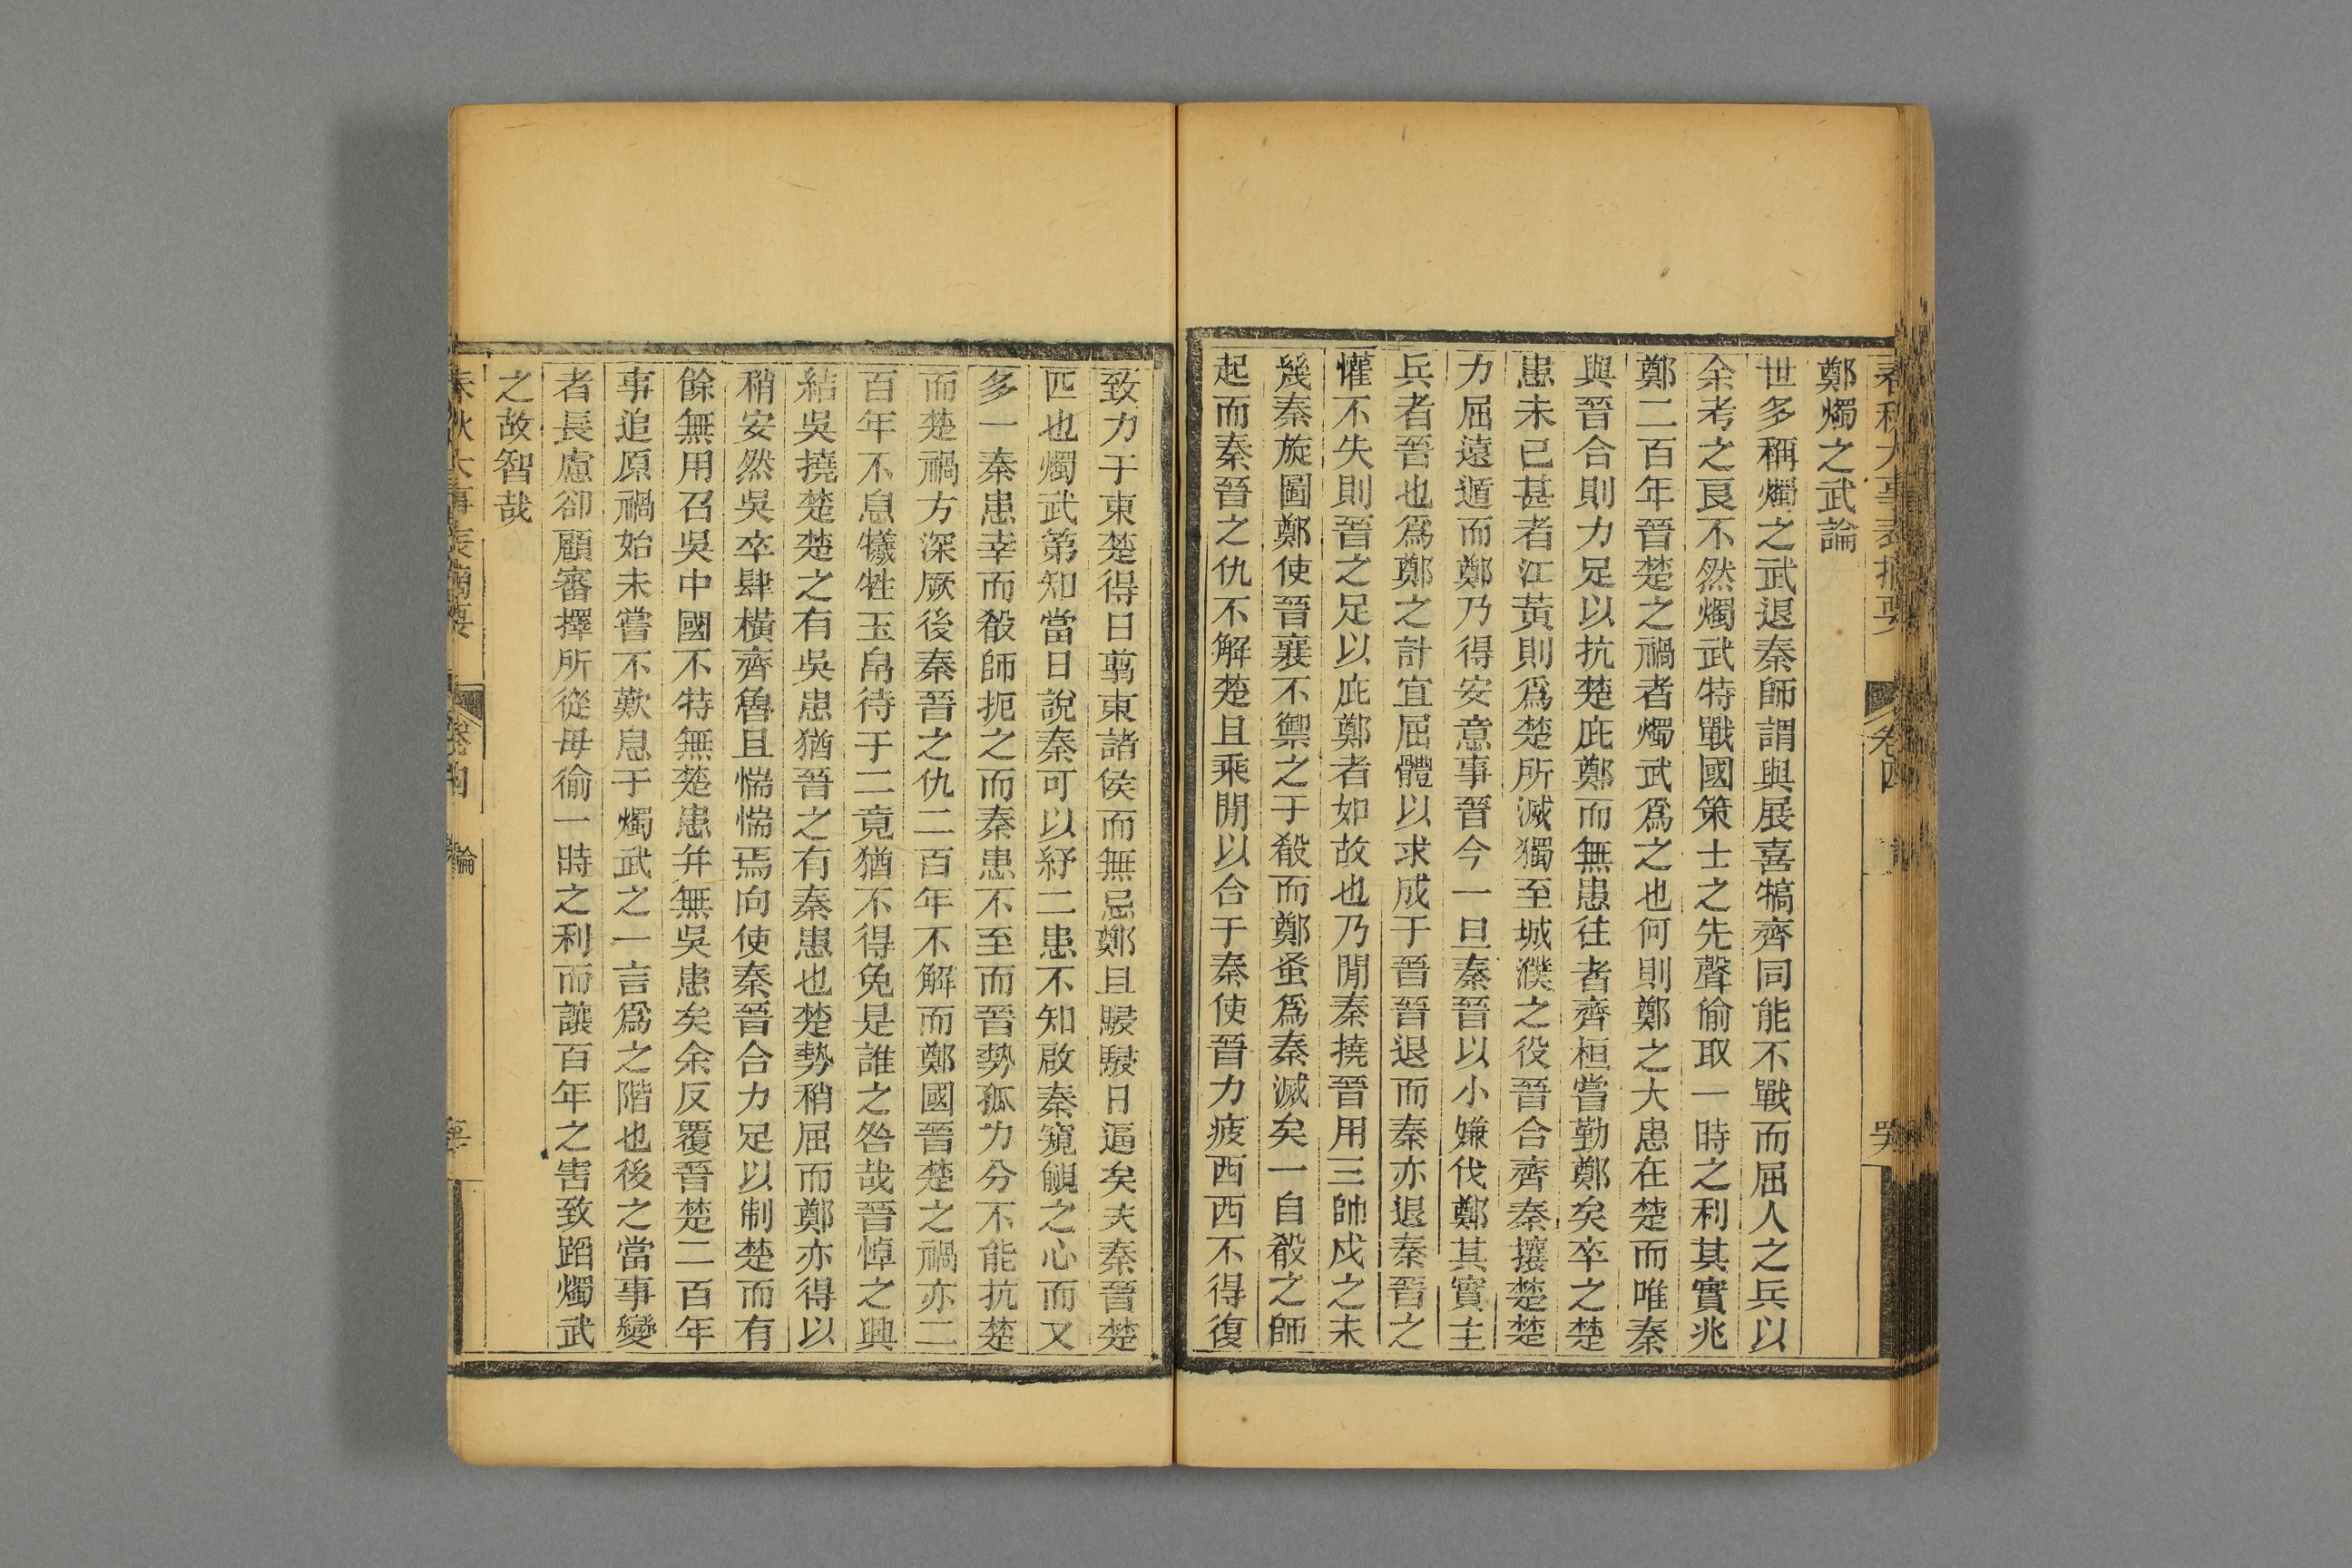 春秋大事表摘要 卷四 論
鄭燭之武論
世多稱燭之武退秦師謂與展喜犒齊同能不戰而屈人之兵以
余考之良不然燭武特戰國策士之先聲偷取一時之利其實兆
鄭二百年晉楚之禍者燭武爲之也何則鄭之大患在楚而唯秦
與晉合則力足以抗楚庇鄭而無患往者齊桓嘗勤鄭矣卒之楚
患未已甚者江黃則爲楚所滅獨至城濮之役晉合齊秦攘楚楚
力屈遠遁而鄭乃得安意事晉今一旦秦晉以小嫌伐鄭其實主
兵者晉也爲鄭之計宜屈體以求成于晉晉退而秦亦退秦晉之
懽不失則晉之足以庇鄭者如故也乃閒秦撓晉用三帥戍之未
幾秦旋圖鄭使晉襄不禦之于殽而鄭蚤爲秦滅矣一自殽之師
起而秦晉之仇不解楚且乘閒以合于秦使晉力疲西西不得復
致力于東楚得日翦東諸侯而無忌鄭且駸駸日逼矣夫秦晉楚
匹也燭武第知當日說秦可以紓二患不知啟秦窺覦之心而又
多一秦患幸而殽師扼之而秦患不至而晉勢孤力分不能抗楚
而楚禍方深厥後秦晉之仇二百年不解而鄭國晉楚之禍亦二
百年不息犧牲玉帛待于二竟猶不得免是誰之咎哉晉悼之興
結吳撓楚楚之有吳患猶晉之有秦患也楚勢稍屈而鄭亦得以
稍安然吳卒肆橫齊魯且惴惴焉向使秦晉合力足以制楚而有
餘無用召吳中國不特無楚患并無吳患矣余反覆晉楚二百年
事追原禍始未嘗不歎息于燭武之一言爲之階也後之當事變
者長慮卻顧審擇所從毋偷一時之利而讓百年之害致蹈燭武
之故智哉
春秋大事表摘要 卷四 論